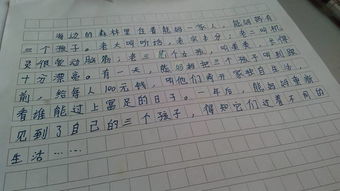 海边的森林里住着熊妈一家人，熊妈妈有
三个孩子。老大叫听话，老实本分；老二叫机
灵，很爱动脑筋；老三叫美美，生得
十分漂亮。有一天，熊妈妈把三个孩子叫到跟
前，给每人100元钱，叫他们离开家独自生活，
看谁能过上富足的日子。一年后，熊妈妈重新
见到了自己的三个孩子，得知它们过着不同的
生活……